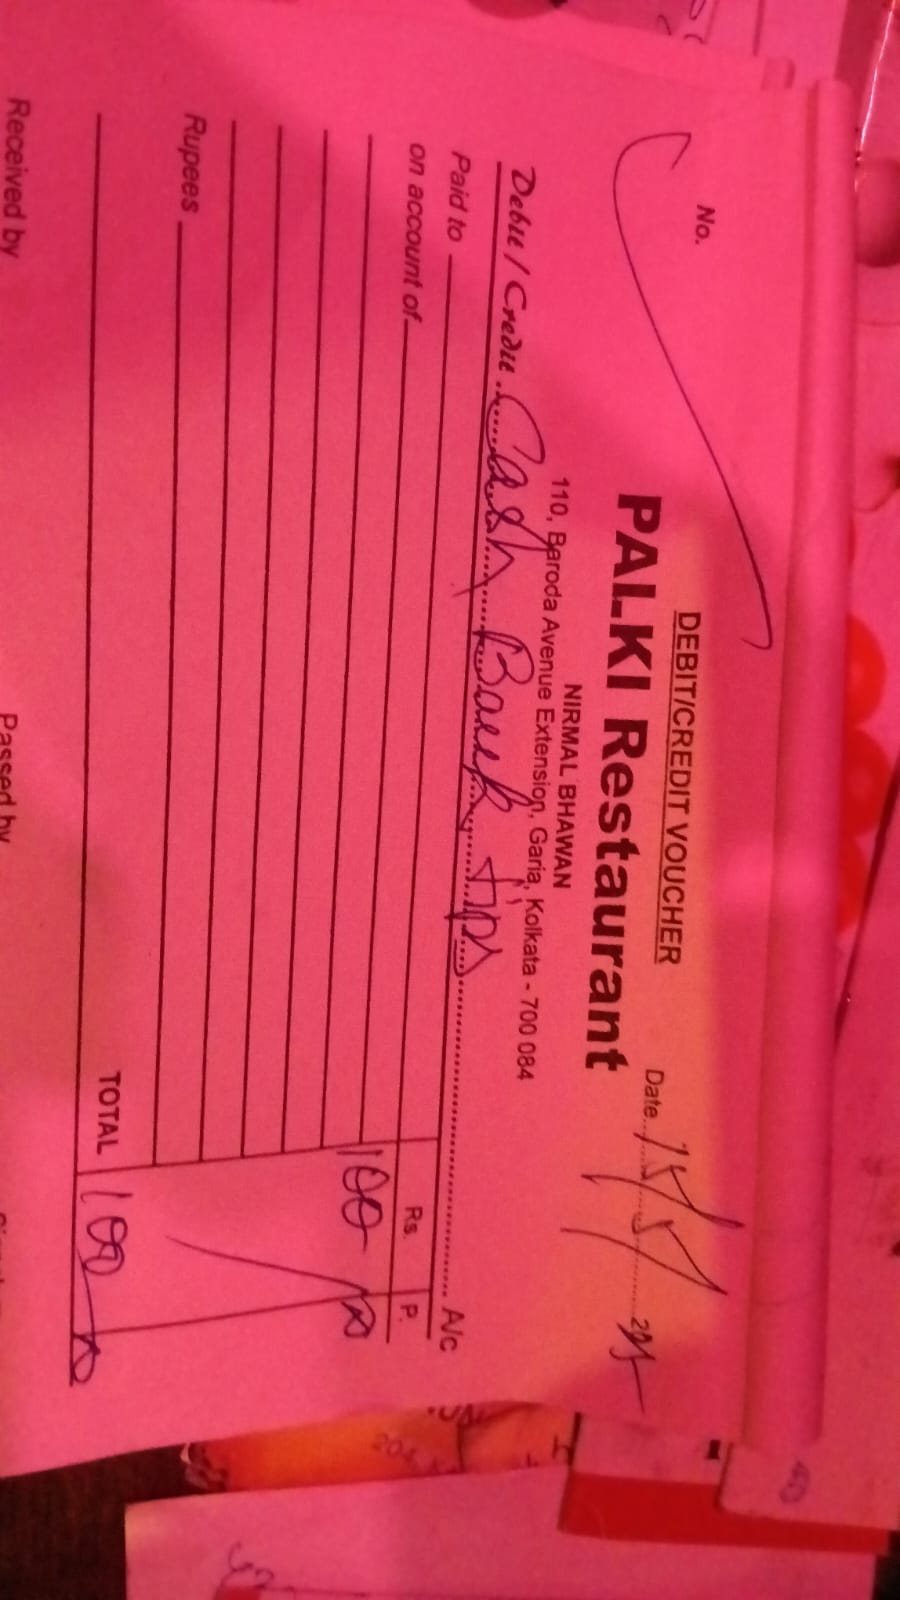 DEBIT/CREDIT VOUCHER
No.
Date
PALKI Restaurant
NIRMAL BHAWAN
110, Baroda Avenue Extension, Garia, Kolkata - 700 084
Debit / Credit Cash Back tips A/c
Paid to
Rs. P.
on account of
100
Rupees
TOTAL 100
Received by Passed by